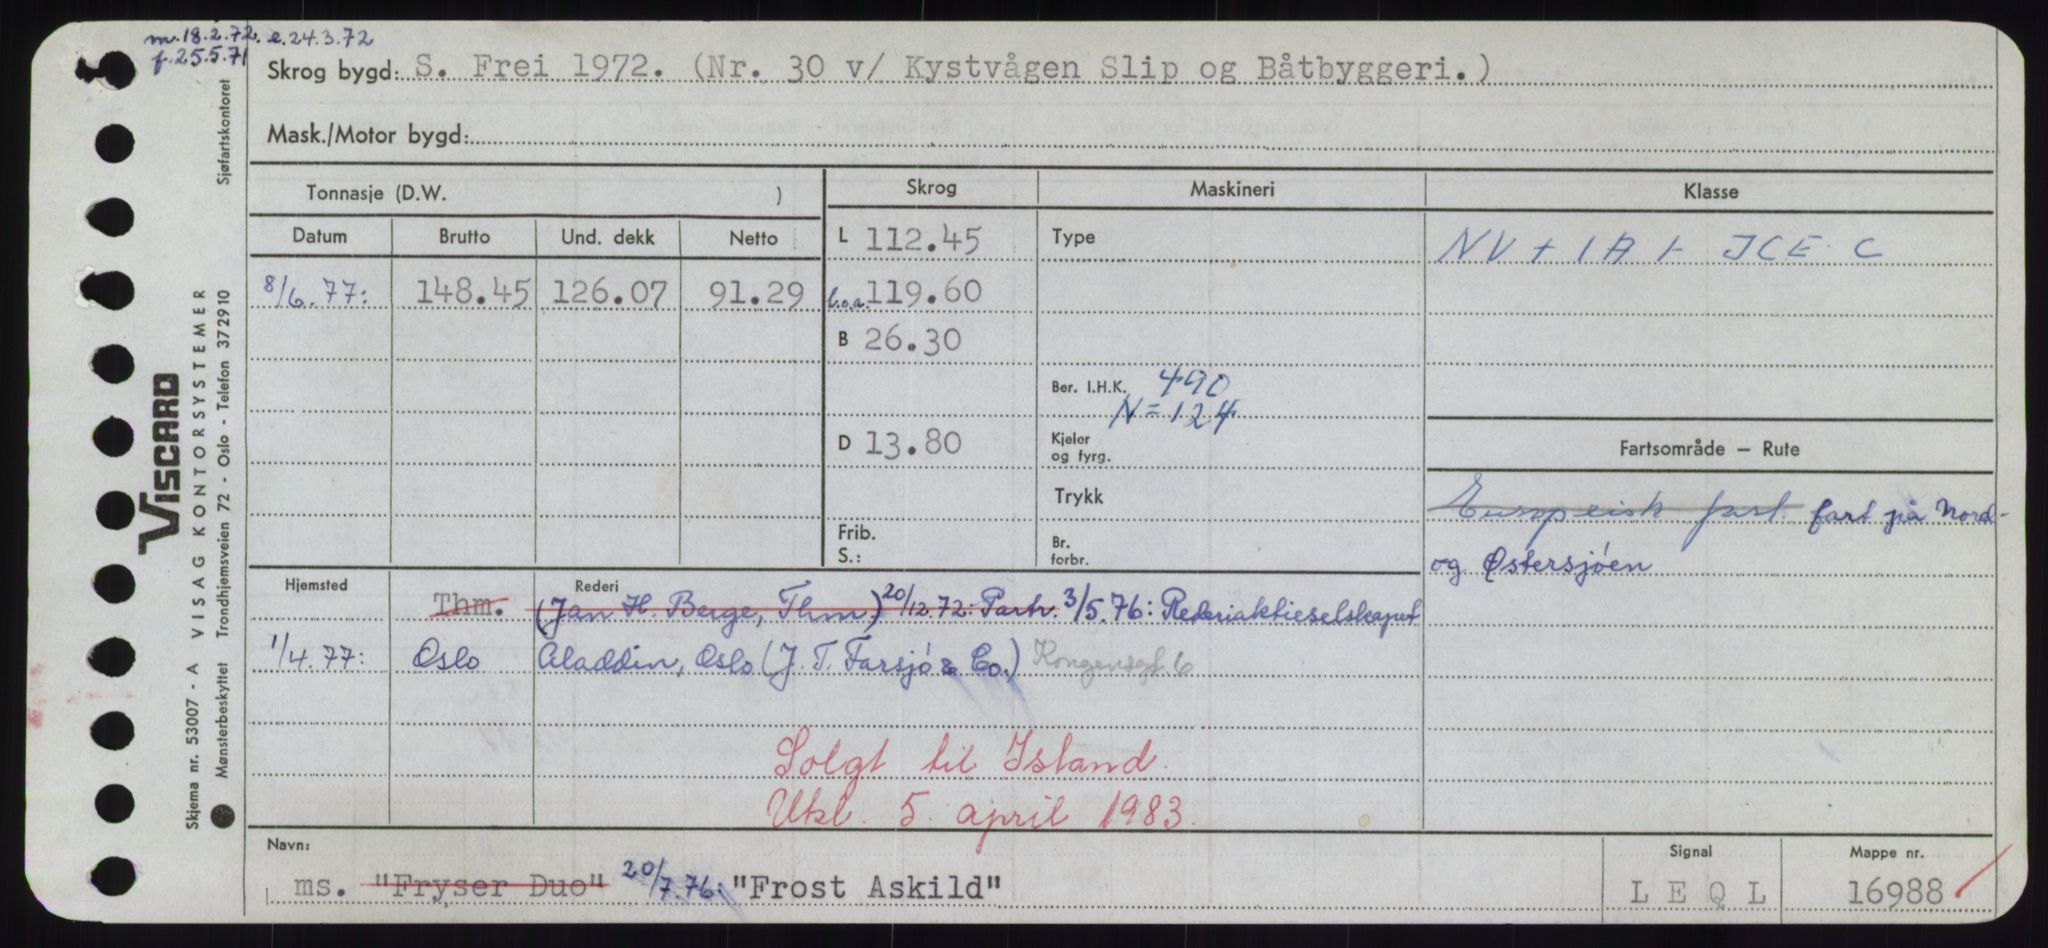 m. 18.2.72. e. 24.3.72
f. 25.5.71
Skrog bygd: S. Frei 1972. (Nr. 30 v/ Kystvågen Slip og Båtbyggeri.)
Mask./Motor bygd:
Tonnasje (D.W. )
Skrog
Maskineri
Klasse
Datum Brutto Und. dekk Netto
L 112.45
Type
NV + 1A1 - ICE C
8/6.77: 148.45 126.07 91.29
l.o.a. 119.60
B 26.30
Ber. I.H.K. 490
N = 124
D 13.80
Kjeler
og fyrg.
Fartsområde — Rute
Trykk
Europeisk fart fart på Nord-
og Østersjøen
Frib.
S.:
Br.
forbr.
Hjemsted
Rederi
Thm. (Jan H. Berge, Thm) 20/12.72: Partr. 3/5.76: Rederiaktieselskapet
1/4.77: Oslo Aladdin, Oslo (J. T. Farsjø & Co.) Kongensgt. 6
Solgt til Island.
Utkl. 5. april 1983.
Navn:
ms. "Fryser Duo" 20/7.76: "Frost Askild"
Signal
L E Q L
Mappe nr.
16988
Sjøfartskontoret
VISCARD
Skjema nr. 53007 - A VISAG KONTORSYSTEMER
Mønsterbeskyttet Trondhjemsveien 72 - Oslo - Telefon 372910